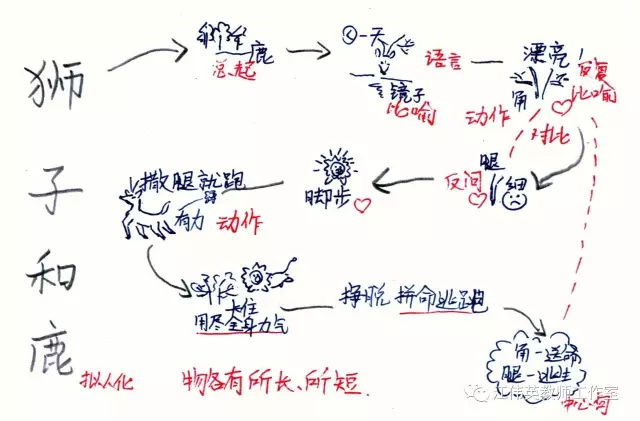 狮子和鹿
鹿
总起
一天
镜子
比喻
语言
动作
漂亮!
角
反复
比喻
对比
腿
细
反问
脚步
撒腿就跑
有力
动作
卡住
用尽全身力气
挣脱 拼命逃跑
角-送命
腿-逃生
中心句
拟人化
物各有所长、所短.
江伟英教师工作室